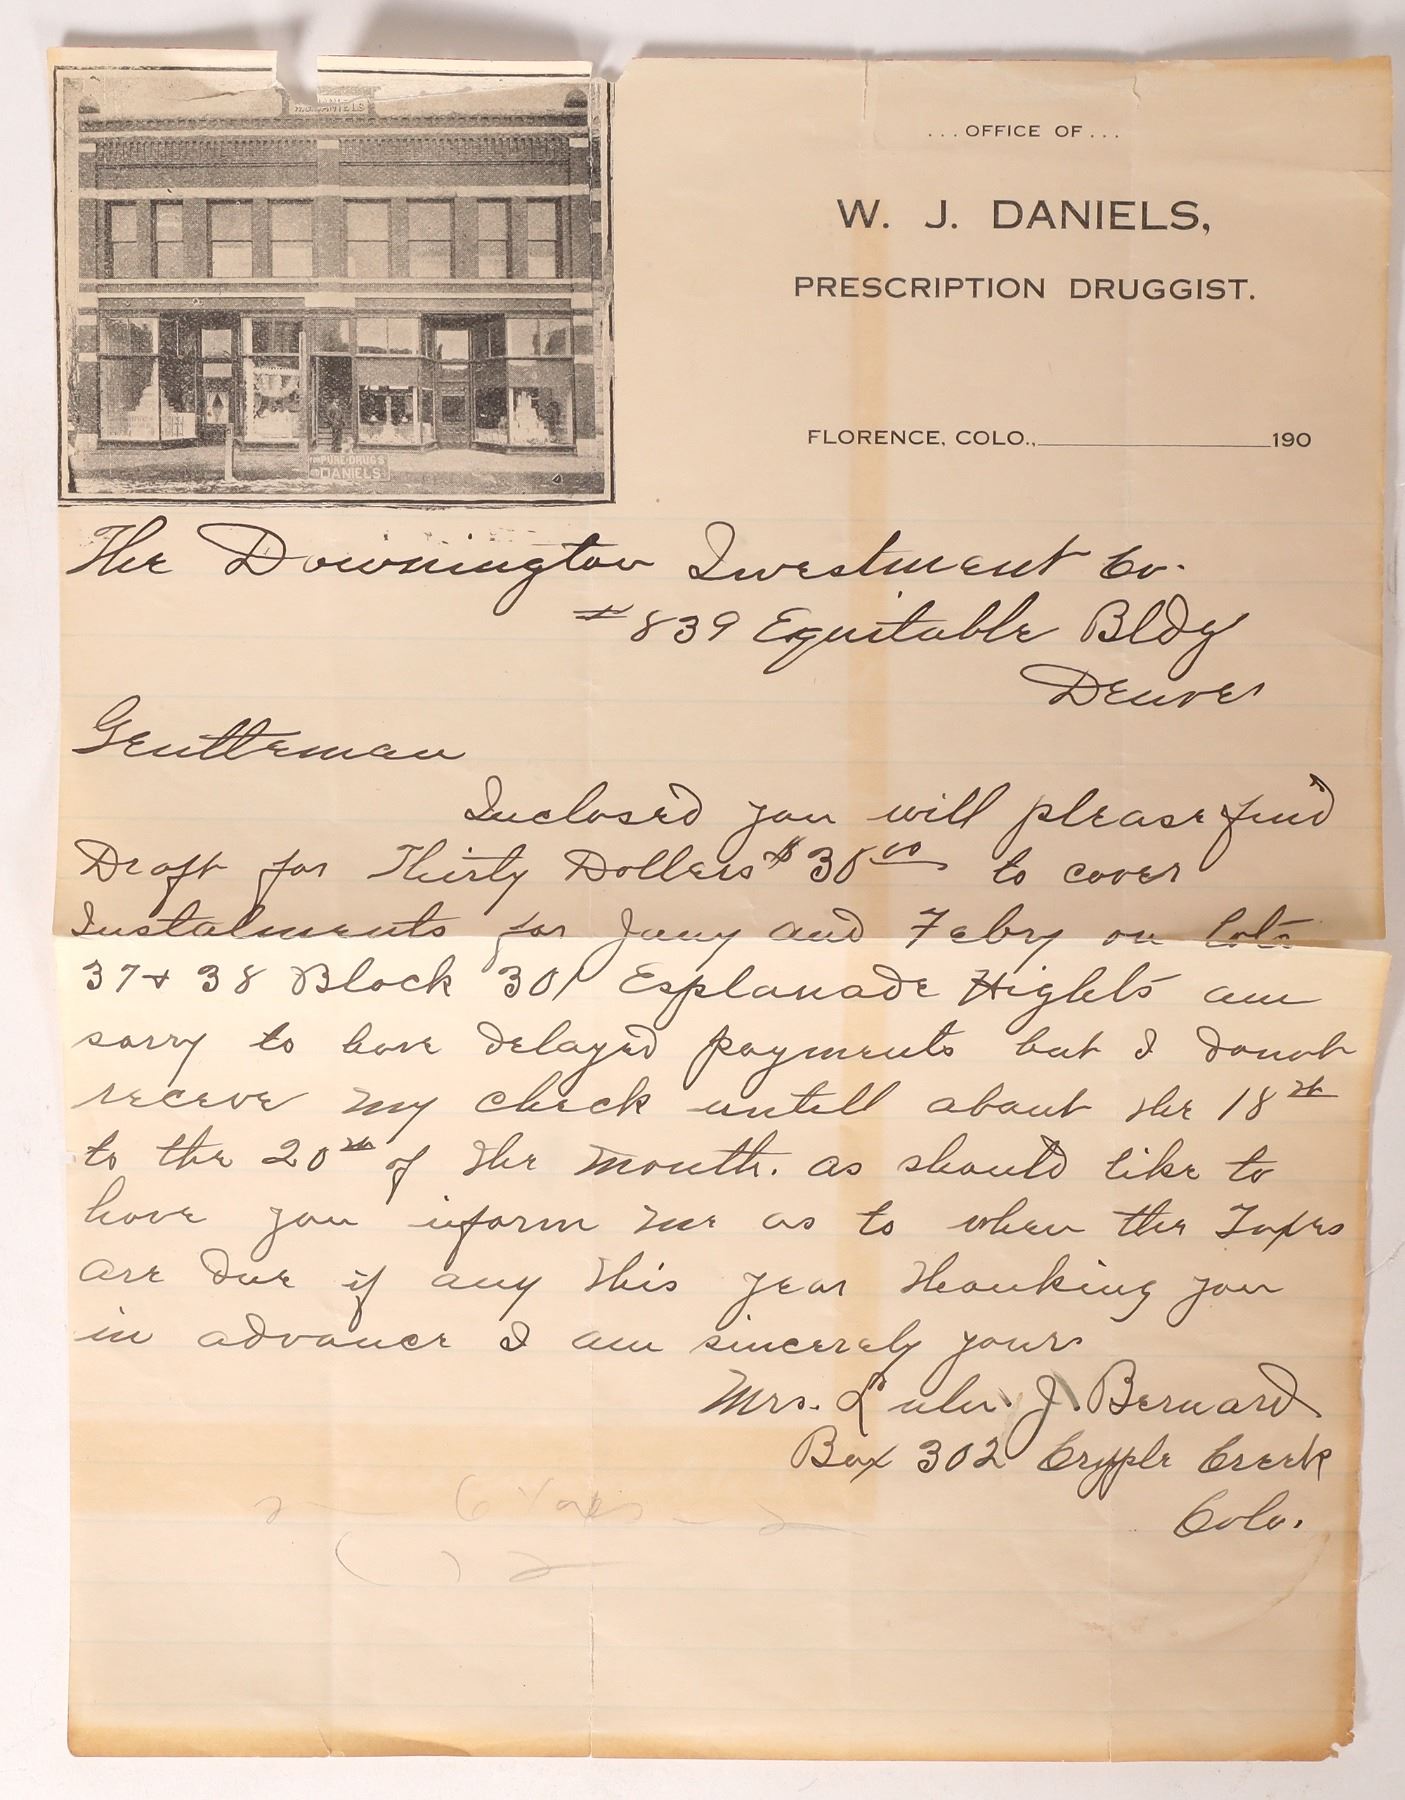 W. J. DANIELS
...OFFICE OF...
W. J. DANIELS,
PRESCRIPTION DRUGGIST.
FLORENCE, COLO., 190
PURE DRUGS
DANIELS
The Downington Investment Co.
#839 Equitable Bldg
Denver
Gentleman
Inclosed you will please find
Draft for Thirty Dollers $30 00 to cover
Instalments for Jany and Febry on Lots
37 + 38 Block 301 Esplanade Hights am
sorry to have delayed payments but I donot
receve my check untill about the 18th
to the 20th of the month. as should like to
have you inform me as to when the Taxes
are due if any this year thanking you
in advance I am sincerely yours
Mrs. Lula J. Bernard
Box 302 Cripple Creek
Colo.